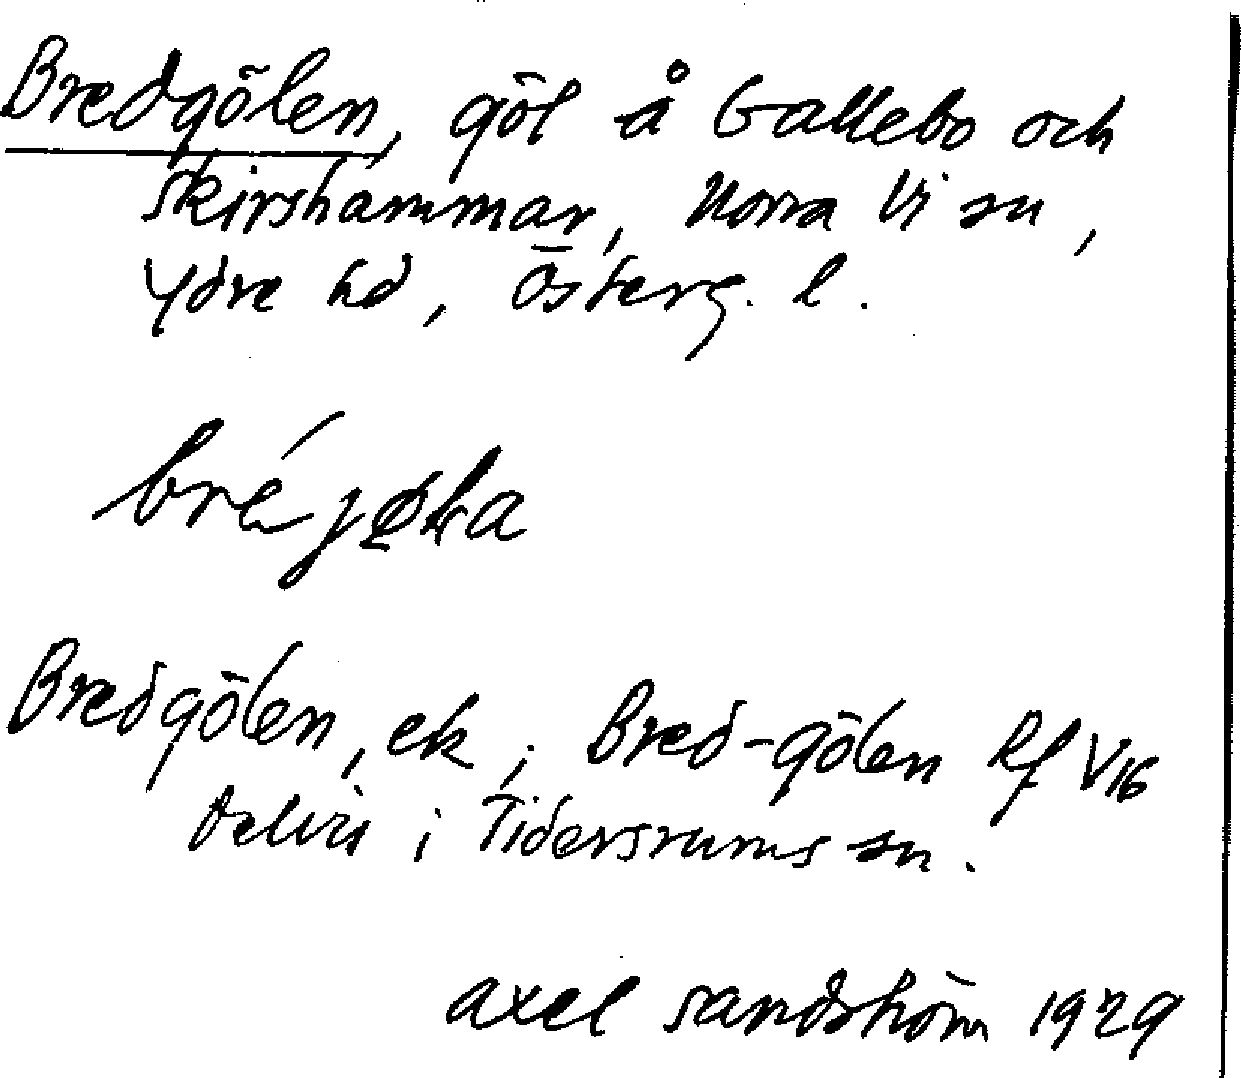 Bredgölen, göl å Gallebo och
Skirshammar, Norra Vi sn,
Ydre hd, Österg. l.
Bredgölen, ek; Bred-gölen Rf V16
Delvis i Tidersrums sn.
Axel Sandström 1929